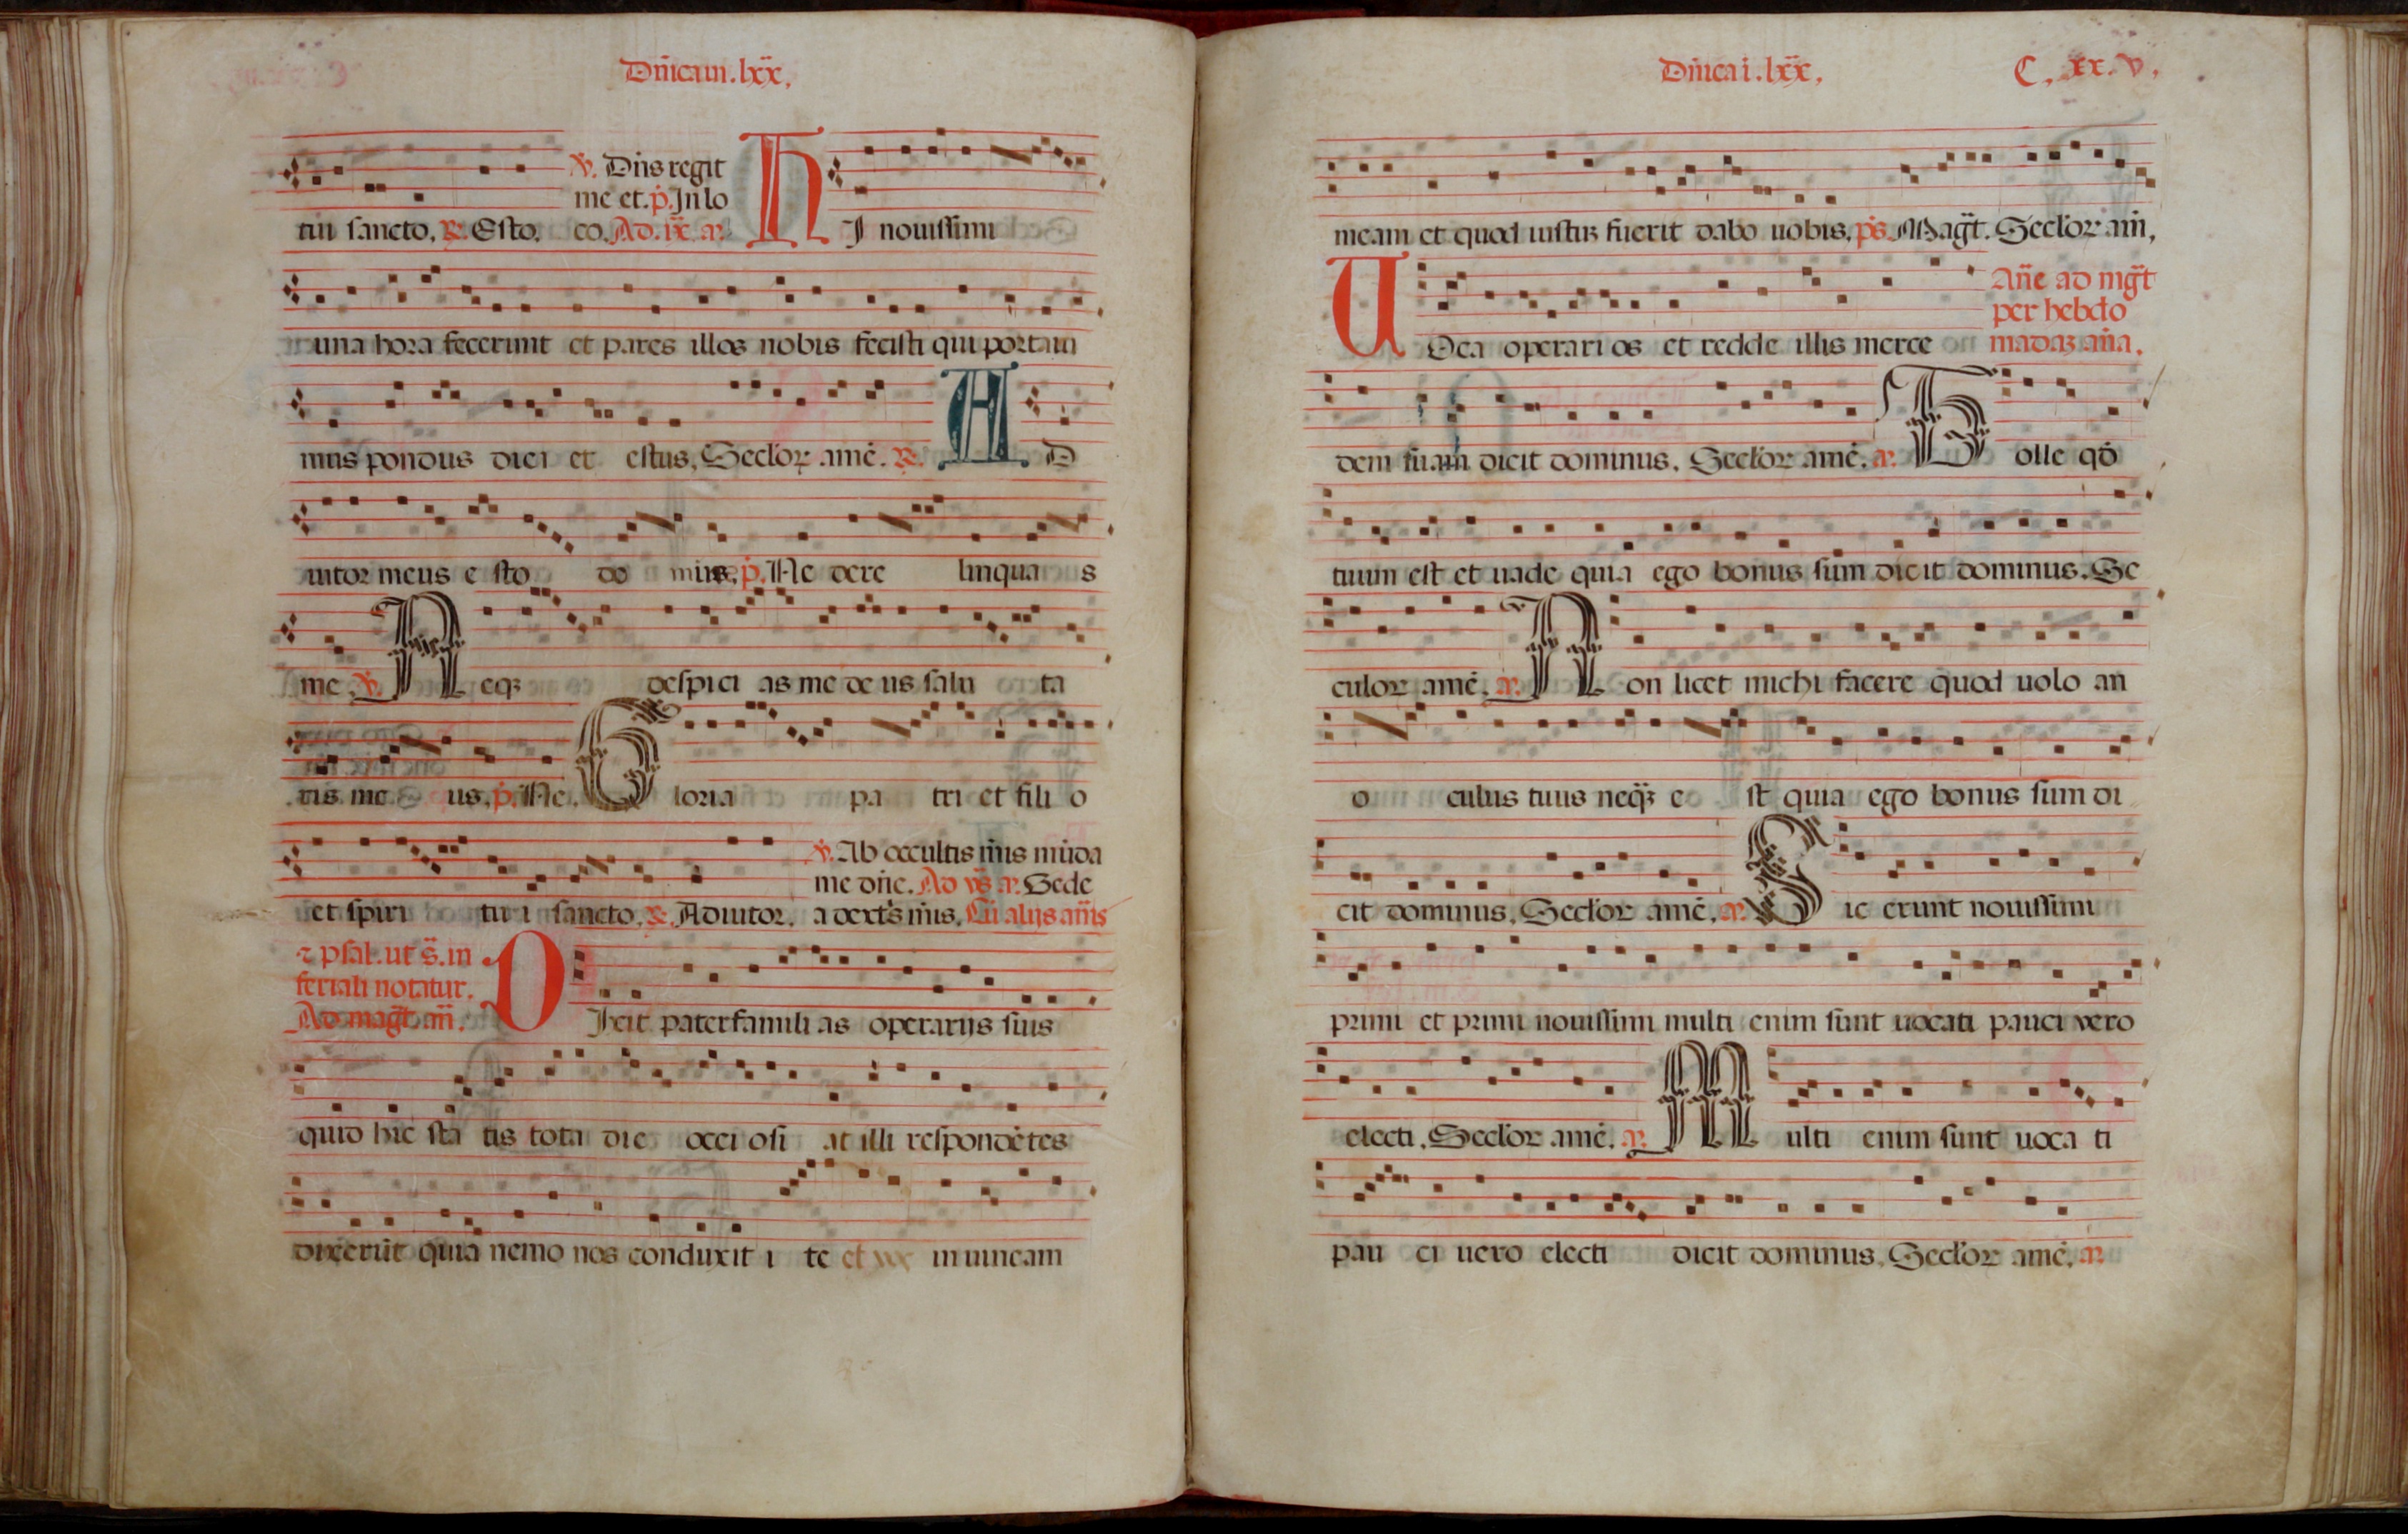 Dn̄ica in . lxx̄ .
tui sancto . ℟ . Esto .
℣ . Dn̄s regit
me et . p̄ . In lo
co . Ad . ix̄ . añ .
H I nouissimi
una hora fecerunt et pares illos nobis fecisti qui portaui
mus pondus diei et estus . Seclor̄ amē . ℟ . A D
iutor meus e sto do mine . p̄ . Ne dere linqua s
me . ℣ . N eqꝫ despici as me de us salu ta
ris me us . p̄ . Ne . G loria pa tri et fili o
℣ . Ab occultis m̄is mūda
me dn̄e . Ad vs̄ añ . Sede
et spiri tu i sancto . ℟ . Adiutor . a dext̄s m̄is . Cū alijs an̄is
⁊ psal . ut s̄ . in
feriali notatur .
Ad maḡt an̄ .
D Ixit paterfamili as operarijs suis
quid hic sta tis tota die occi osi at illi respondētes
dixerūt quia nemo nos conduxit i te et uos in uineam
Dn̄ica i . lxx̄ . C . xx . v .
meam et quod iustuꝫ fuerit dabo uobis . ps̄ . Maḡt . Seclor̄ am̄ .
Añe ad mḡt
per hebdo
madaꝫ an̄a .
U Oca operari os et redde illis merce
dem suam dicit dominus . Seclor̄ amē . añ . T olle qđ
tuum est et uade quia ego bonus sum dicit dominus . Se
culor̄ amē . añ . N on licet michi facere quod uolo an
o culus tuus neqꝫ e st quia ego bonus sum di
cit dominus . Seclor̄ amē . añ . S ic erunt nouissimi
primi et primi nouissimi multi enim sunt uocati pauci vero
electi . Seclor̄ amē . añ . M ulti enim sunt uoca ti
pau ci uero electi dicit dominus . Seclor̄ amē . añ .